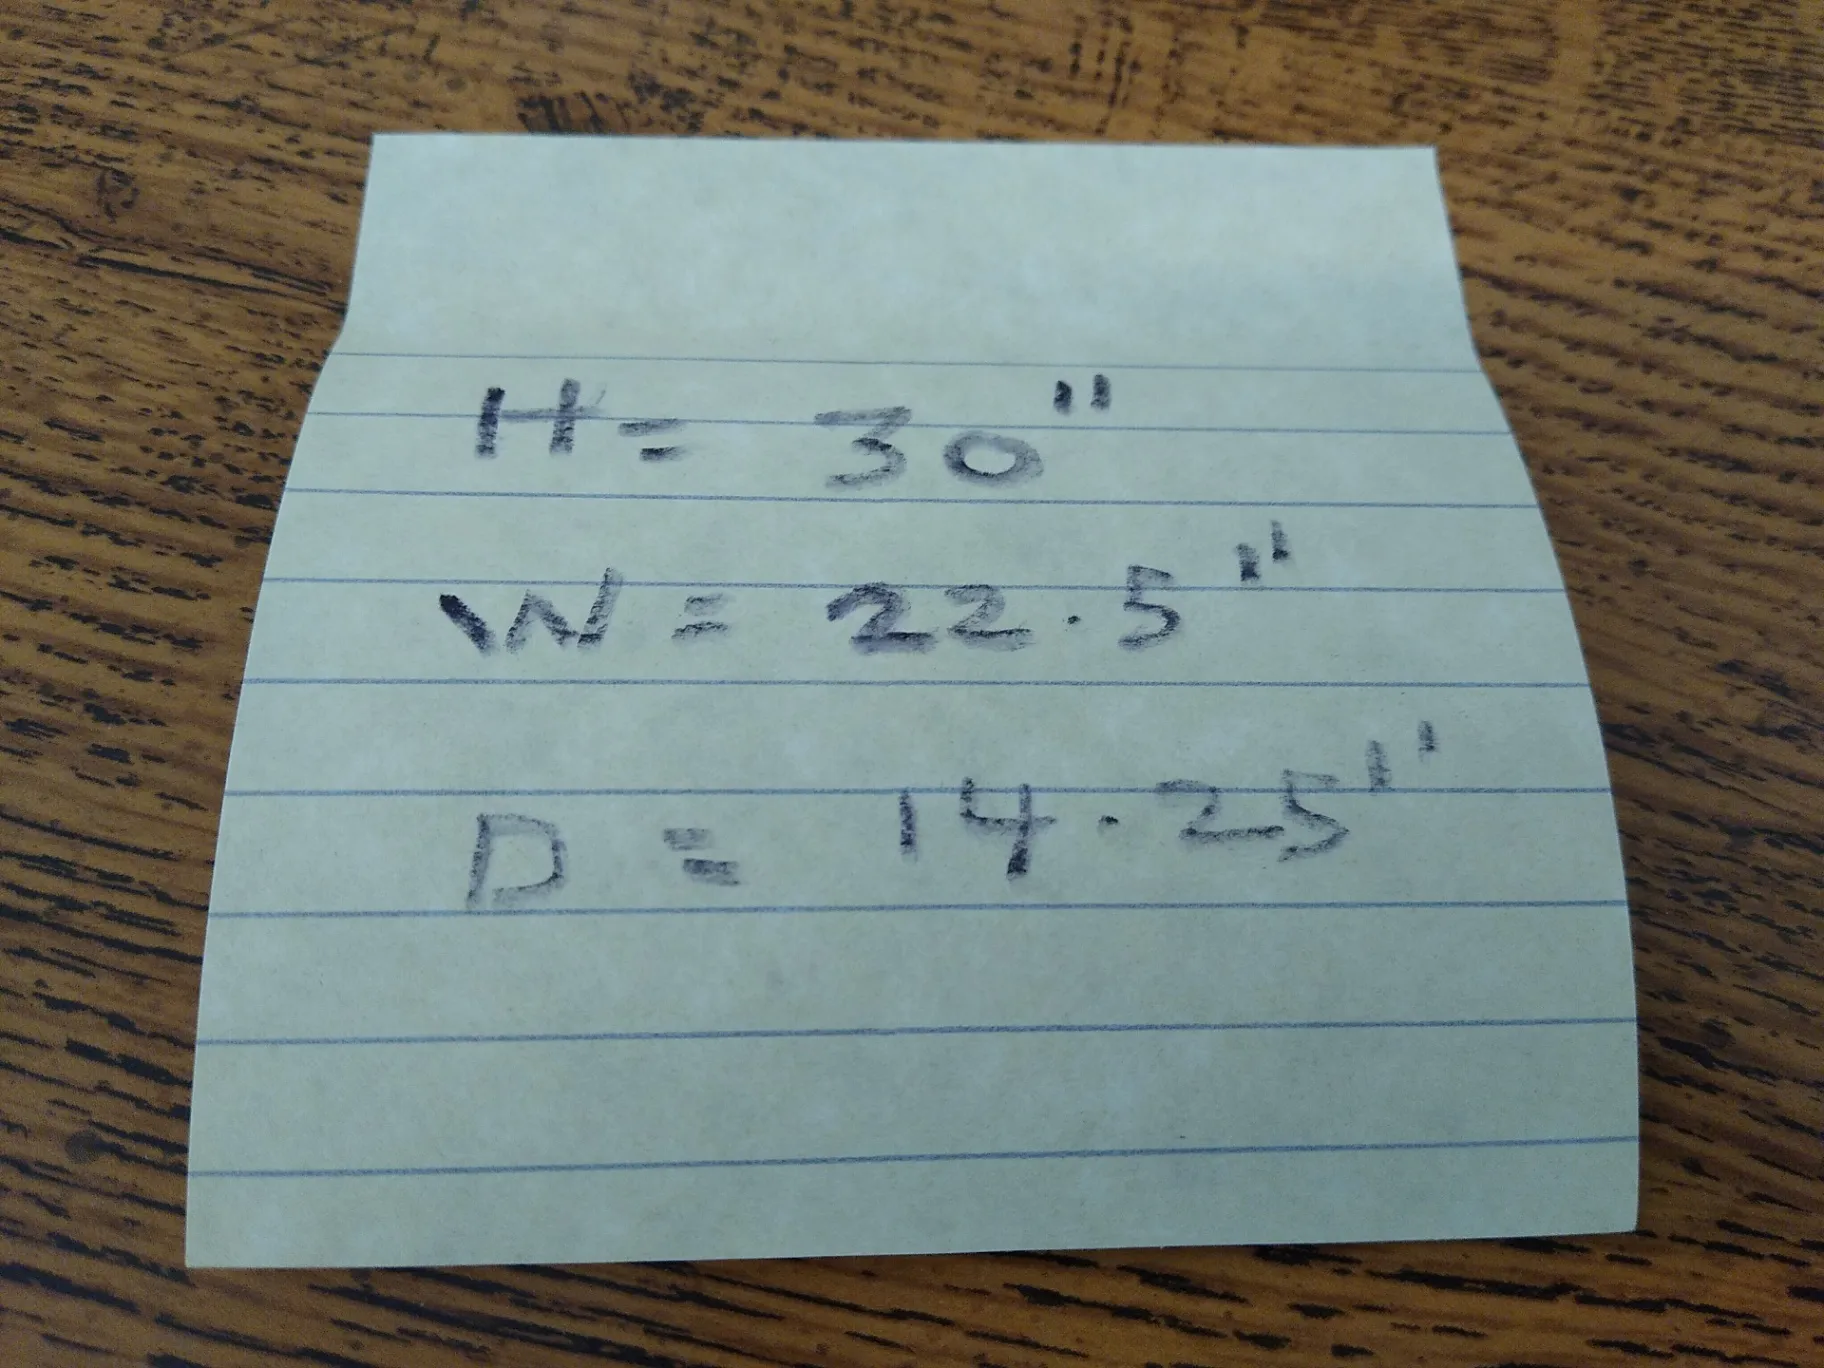 H = 30"
W = 22.5"
D = 14.25"